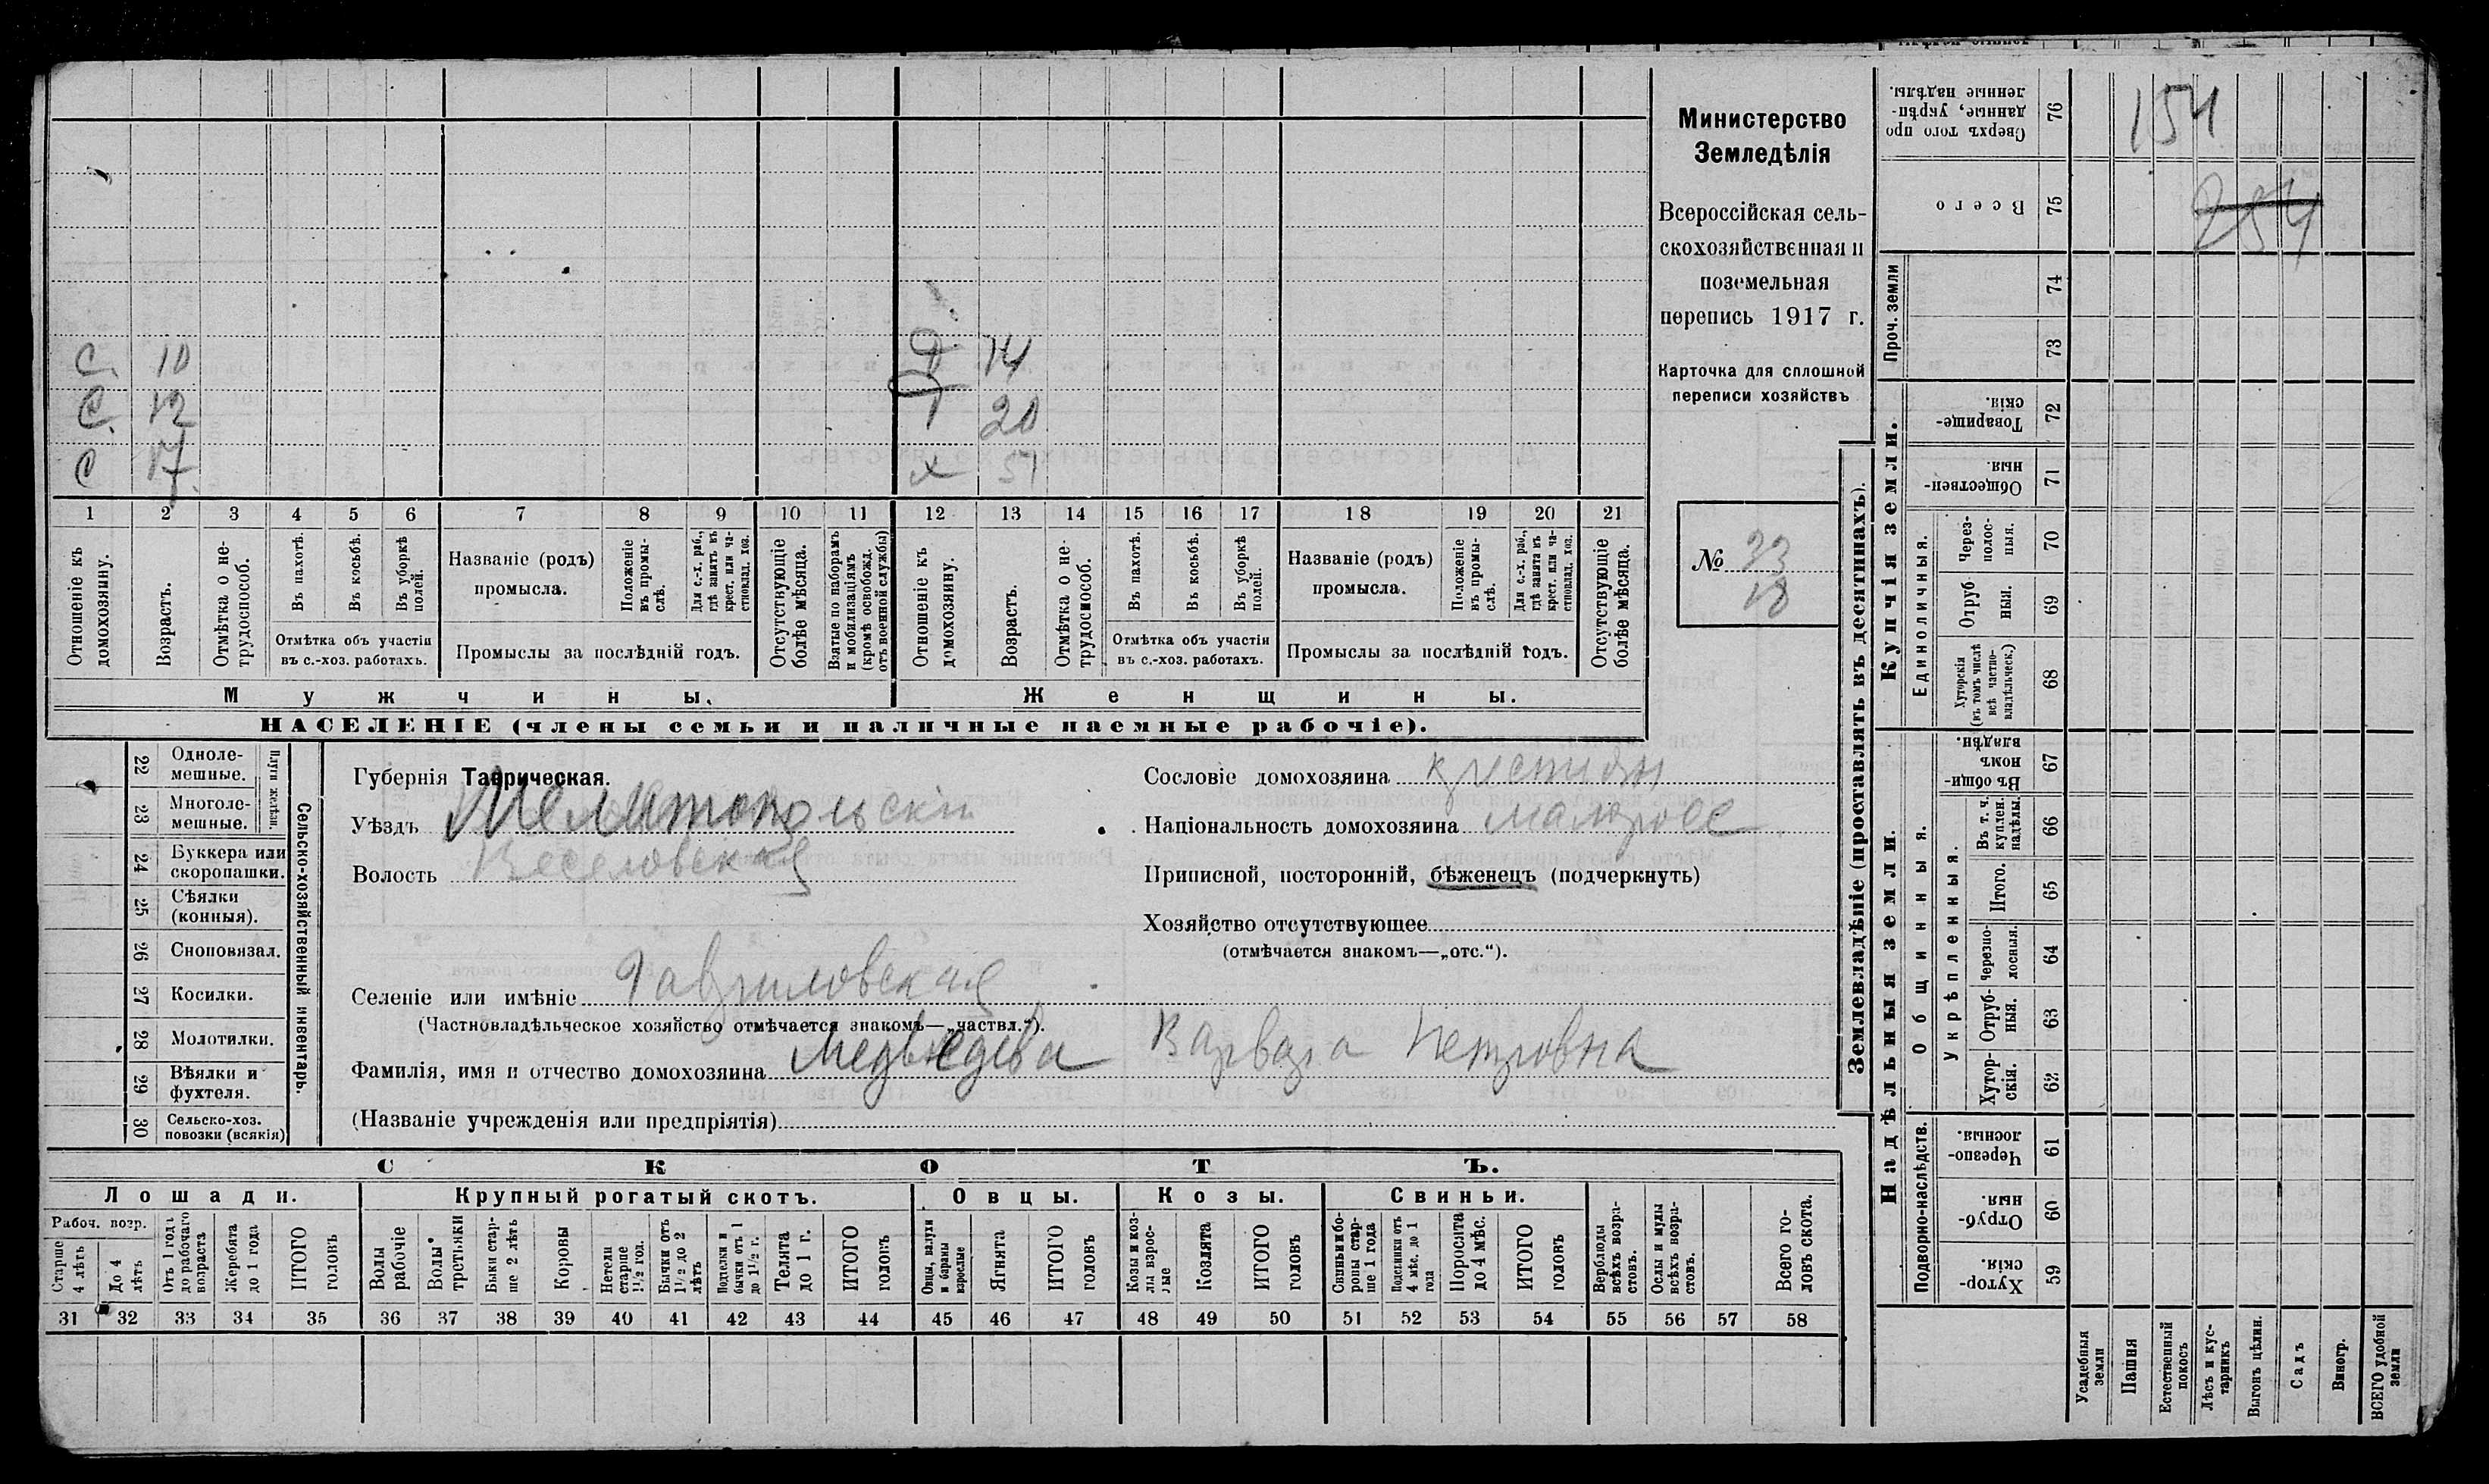 Министерство
Земледѣлія
Всероссійская сель-
скохозяйственная и
поземельная
перепись 1917 г.
Карточка для сплошной
переписи хозяйствъ
№ 33
18
С. 10
С. 12
С 17
Д. 14
Д 20
х 51
1 2 3 4 5 6 7 8 9 10 11 12 13 14 15 16 17 18 19 20 21
Отношеніе къ домохозяину.
Возрастъ.
Отмѣтка о не-трудоспособ.
Въ пахотѣ.
Въ косьбѣ.
Въ уборкѣ полей.
Отмѣтка объ участіи
въ с.-хоз. работахъ.
Названіе (родъ)
промысла.
Положеніе въ промы-слѣ.
Для с.-х. раб., гдѣ занятъ въ крест. или ча-стновлад. хоз.
Промыслы за послѣдній годъ.
Отсутствующіе болѣе мѣсяца.
Взятые по наборамъ и мобилизаціямъ (кромѣ освобожд. отъ военной службы)
Отношеніе къ домохозяину.
Возрастъ.
Отмѣтка о не-трудоспособ.
Въ пахотѣ.
Въ косьбѣ.
Въ уборкѣ полей.
Отмѣтка объ участіи
въ с.-хоз. работахъ.
Названіе (родъ)
промысла.
Положеніе въ промы-слѣ.
Для с.-х. раб., гдѣ занята въ крест. или ча-стновлад. хоз.
Промыслы за послѣдній годъ.
Отсутствующіе болѣе мѣсяца.
Мужчины.
Женщины.
НАСЕЛЕНІЕ (члены семьи и наличные наемные рабочіе).
22 Одноле-мешные.
23 Многоле-мешные.
Плуги желѣзн.
24 Буккера или скоропашки.
25 Сѣялки (конныя).
26 Сноповязал.
27 Косилки.
28 Молотилки.
29 Вѣялки и фухтеля.
30 Сельско-хоз. повозки (всякія)
Сельско-хозяйственный инвентарь.
Губернія Таврическая.
Уѣздъ Мелитопольскій
Волость Веселовская
Сословіе домохозяина крестьян
Національность домохозяина малоросс
Приписной, посторонній, бѣженецъ (подчеркнуть)
Хозяйство отсутствующее
(отмѣчается знакомъ—„отс.“).
Селеніе или имѣніе Гавриловская
(Частновладѣльческое хозяйство отмѣчается знакомъ—„частвл.“).
Фамилія, имя и отчество домохозяина Медведева Варвара Петровна
(Названіе учрежденія или предпріятія)
СКОТЪ.
Лошади.
Крупный рогатый скотъ.
Овцы.
Козы.
Свиньи.
Рабоч. возр.
Старше 4 лѣтъ
До 4 лѣтъ
Отъ 1 года до рабочаго возраста
Жеребята до 1 года
ИТОГО головъ
Волы рабочіе
Волы третьяки
Быки стар-ше 2 лѣтъ
Коровы
Нетели старше 1½ год.
Бычки отъ 1½ до 2 лѣтъ
Подтелки и бычки отъ 1 до 1½ г.
Телята до 1 г.
ИТОГО головъ
Овцы, валухи и бараны взрослые
Ягнята
ИТОГО головъ
Козы и коз-лы взрос-лые
Козлята
ИТОГО головъ
Свиньи и бо-ровы стар-ше 1 года
Подсвинки отъ 4 мѣс. до 1 года
Поросята до 4 мѣс.
ИТОГО головъ
Верблюды всѣхъ возра-стовъ.
Ослы и мулы всѣхъ возра-стовъ.
Всего го-ловъ скота.
31 32 33 34 35 36 37 38 39 40 41 42 43 44 45 46 47 48 49 50 51 52 53 54 55 56 57 58
Землевладѣніе (проставлять въ десятинахъ).
Купчія земли.
Надѣльныя земли.
Сверхъ того про данные, укрѣп-ленные надѣлы. 76
154
Всего 75
254
Проч. земли
74
73
Товарище-скія. 72
Обществен-ныя. 71
Единоличныя.
Через-полос-ныя. 70
Отруб-ныя. 69
Хуторскія (въ томъ числѣ всѣ частно-владѣльческ.) 68
Общинныя.
Въ общин-номъ владѣн. 67
Укрѣпленныя.
Въ т. ч. куплен. надѣлы. 66
Итого. 65
Черезпо-лосныя. 64
Отруб-ныя. 63
Хутор-скія. 62
Подворно-наслѣдств.
Черезпо-лосныя. 61
Отруб-ныя. 60
Хутор-скія. 59
Усадебныя земли
Пашня
Естественный покосъ
Лѣсъ и кус-тарникъ
Выгонъ цѣлин.
Садъ
Виногр.
ВСЕГО удобной земли